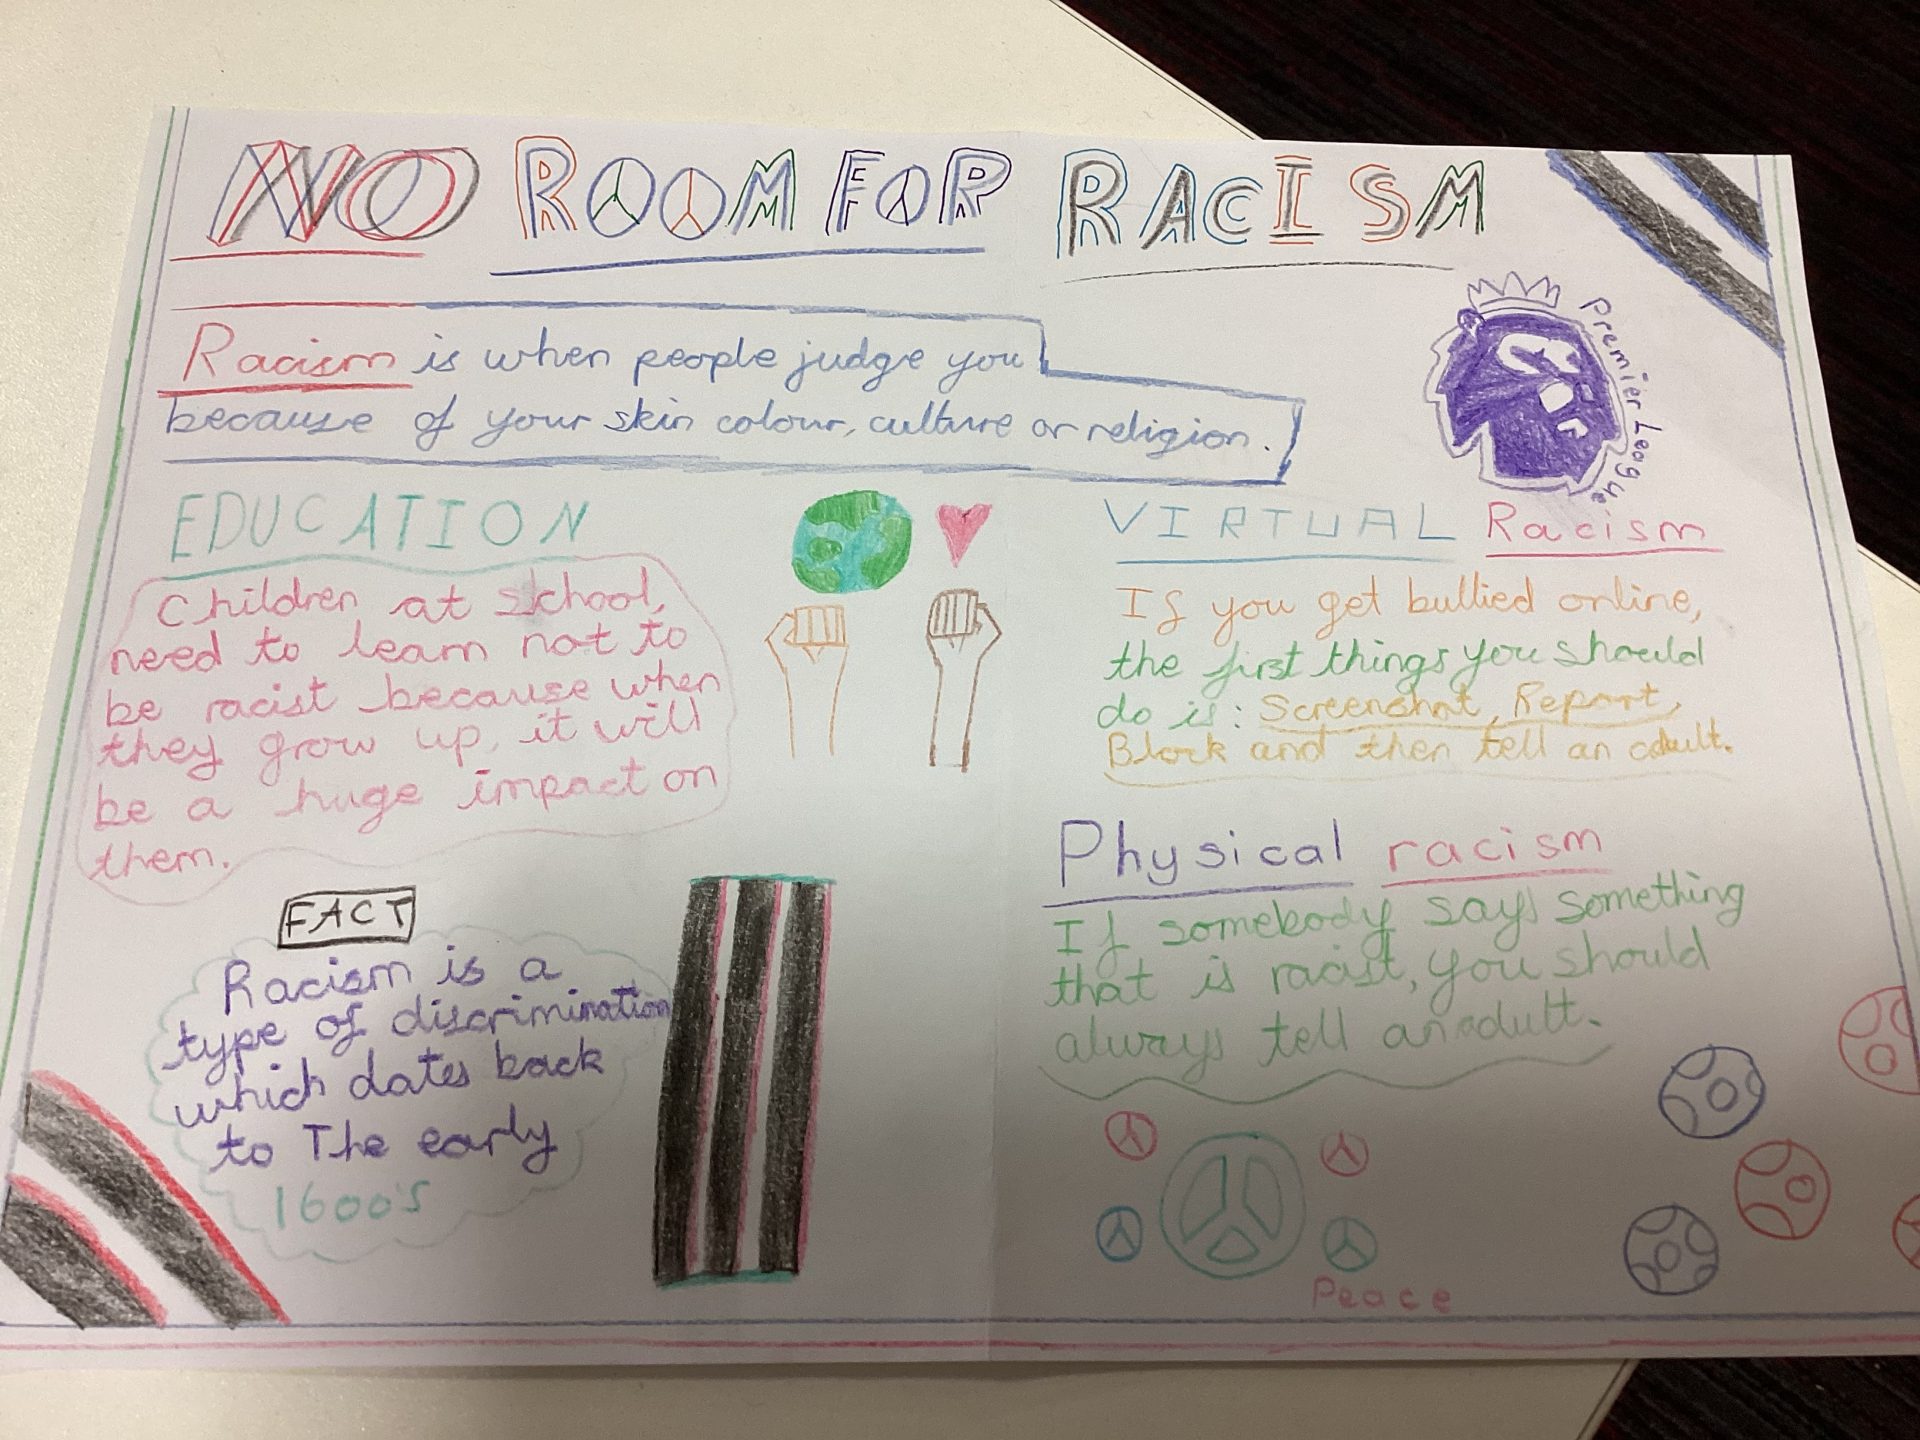 NO ROOM FOR RACISM
Racism is when people judge you
because of your skin colour, culture or religion.
Premier League
EDUCATION
Children at school,
need to learn not to
be racist because when
they grow up, it will
be a huge impact on
them.
FACT
Racism is a
type of discrimination
which dates back
to The early
1600's
VIRTUAL Racism
If you get bullied online,
the first things you should
do is: Screenshot, Report,
Block and then tell an adult.
Physical racism
If somebody says something
that is racist, you should
always tell an adult.
Peace